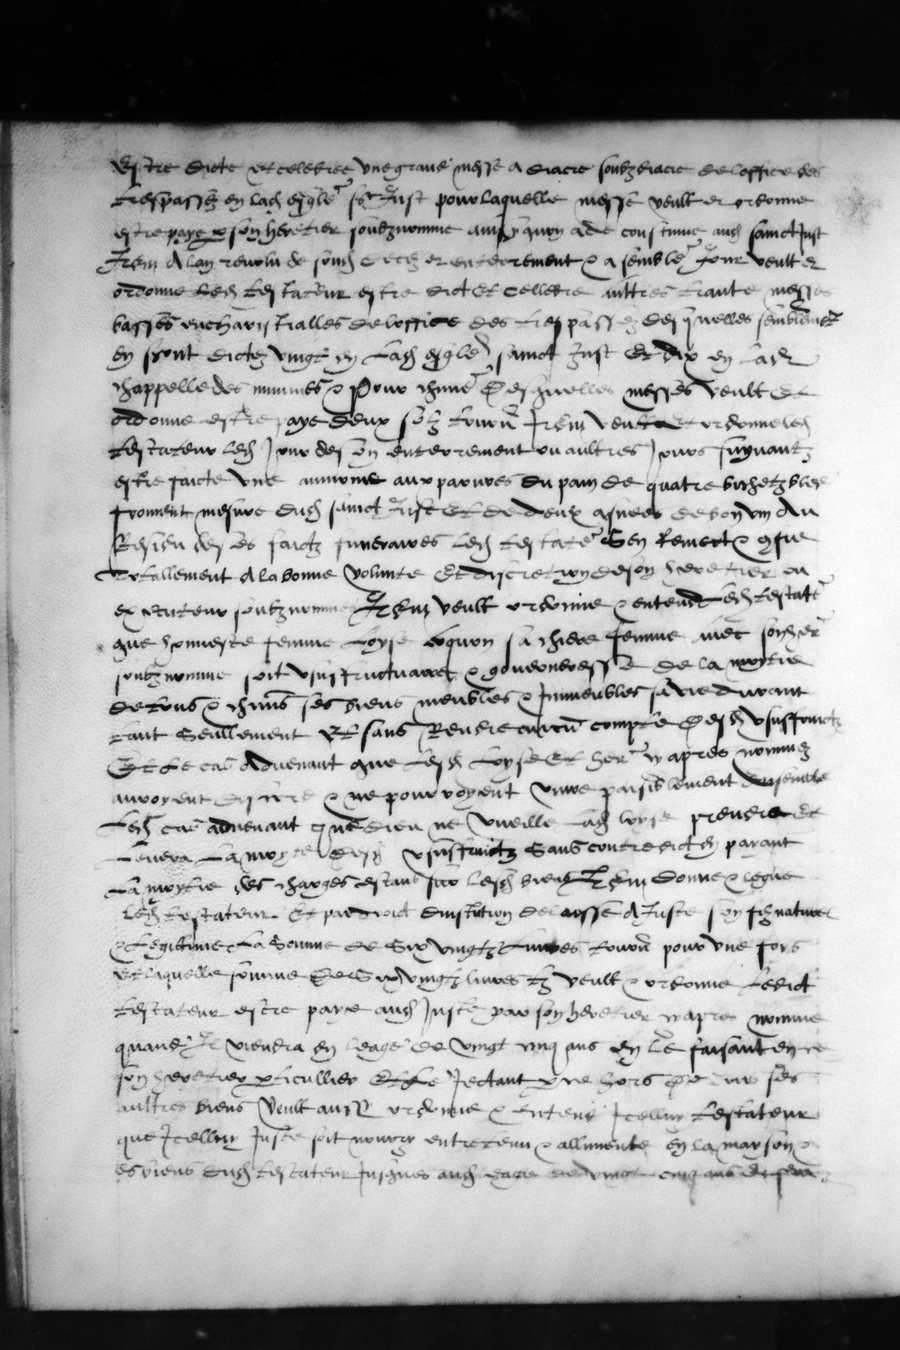 Estre dicte et celebree une grand messe a diacre soubzdiacre de loffice des
trespassez en lad esglē st Just pour laquelle messe veult et ordonne
estre paye p son heretier soubznomme ainsy quon a de coustume aud sainct Just
Item a lan revolu de sond deces et enterrement & a semblē Jour veult et
ordonne led testateur estre dict et cellebre aultres trante messes
basses eucharistialles de loffice des trespassez desquelles
en seront dictes vingt en lad esglē sainct Just et dix en lad
chappelle des mimmes & pour chune desquelles messes veult et
ordonne estre paye deux solz tourn Item veult et ordonne led
testateur led Jour de son enterrement ou aultres Jours suyvantz
estre faicte une aumosne aux pauvres du pain de quatre bichetz bled
froment mesure dud sainct Just et de deux asnees de bon vin Au
Residu de ses faictz funeraires led testatr sen Remect & cfie
totallement a la bonne volunte et discretion de son heretier ou
executeur soubznomme Item veult ordonne & entend led testatr
que honneste femme Loyse sa chere femme avec sond her
soubznomme soit usuffructuaire & gouverneresse de la moytie
de tous & chuns ses biens meubles & Immeubles sa vie durant
tant seullement et sans Rendre aucun compte desd usuffructz
Et le cas advenant que lesd Loyse et her cy apres nommez
& ne pourroyent vivre paisiblement ensemble
led cas advenant que dieu ne vueille lad loyse prendre et
levera la moytie desd usuffruictz sans contredict en payant
la moytie des charges estans sur lesd biens Item donne & legue
led testateur et par droict dinstitution delaisse a Juste son filz naturel
& legitime la somme de six vingtz livres tourn pour une fois
et laquelle somme de six vingtz livres tz veult & ordonne ledict
testateur estre paye aud Juste par son heretier cy apres nomme
quand Il viendra en leage de vingt cinq ans en le faisant en ce
son heretier pticullier et le Jectant pre hors de tous ses
aultres biens veult aussi ordonne & entend Icelluy testateur
que Icelluy Juste soit nourry entretenu & allimente en la mayson &
es biens dud testateur Jusques aud eage de vingt cinq ans